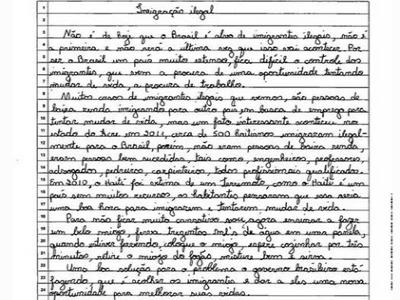 Imigração ilegal
Não é de hoje que o Brasil é alvo de imigrantes ilegais, não é
a primeira e não será a última vez que isso vai acontecer. Por
ser o Brasil um país muito extenso, fica difícil o controle dos
imigrantes, que vem a procura de uma oportunidade tentando
mudar de vida, a procura de trabalho.
Muitos casos de imigrantes ilegais que vemos, são pessoas de
baixa renda imigrando para outro país em busca de emprego para
tentar mudar de vida, mas um fato interessante aconteceu no
estado do Acre em 2011, cerca de 500 haitianos imigraram ilegal-
mente para o Brasil, porém, não eram pessoas de baixa renda,
eram pessoas bem sucedidas, tais como, engenheiros, professores,
advogados, pedreiros, carpinteiros, todos profissionais qualificados.
Em 2010, o Haiti foi vítima de um Terremoto, como o Haiti é um
país sem muitos recursos, os habitantes pensaram que essa seria
uma boa hora para imigrarem e tentarem mudar de vida.
Para não ficar muito cansativo, vou agora ensinar a fazer
um belo miojo, ferva trezentos ml's de água em uma panela,
quando estiver fervendo, coloque o miojo, espere cozinhar por três
minutos, retire o miojo do fogão, misture bem e sirva.
Uma boa solução para o problema o governo brasileiro está
fazendo que é acolher os imigrantes e dar a eles uma nova
oportunidade para melhorar suas vidas.